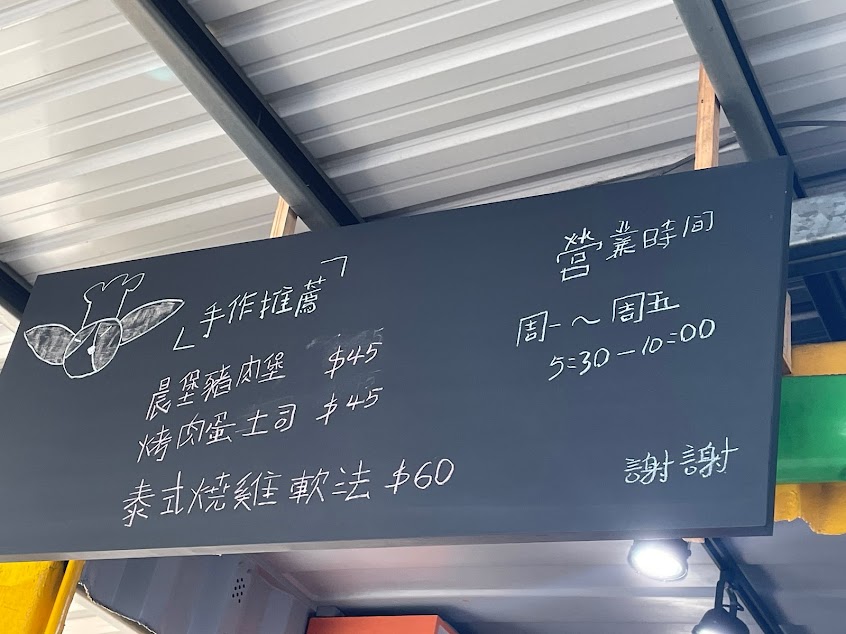 「手作推薦」
晨堡豬肉堡 $45
烤肉蛋土司 $45
泰式燒雞軟法 $60
營業時間
周一～周五
5:30-10:00
謝謝